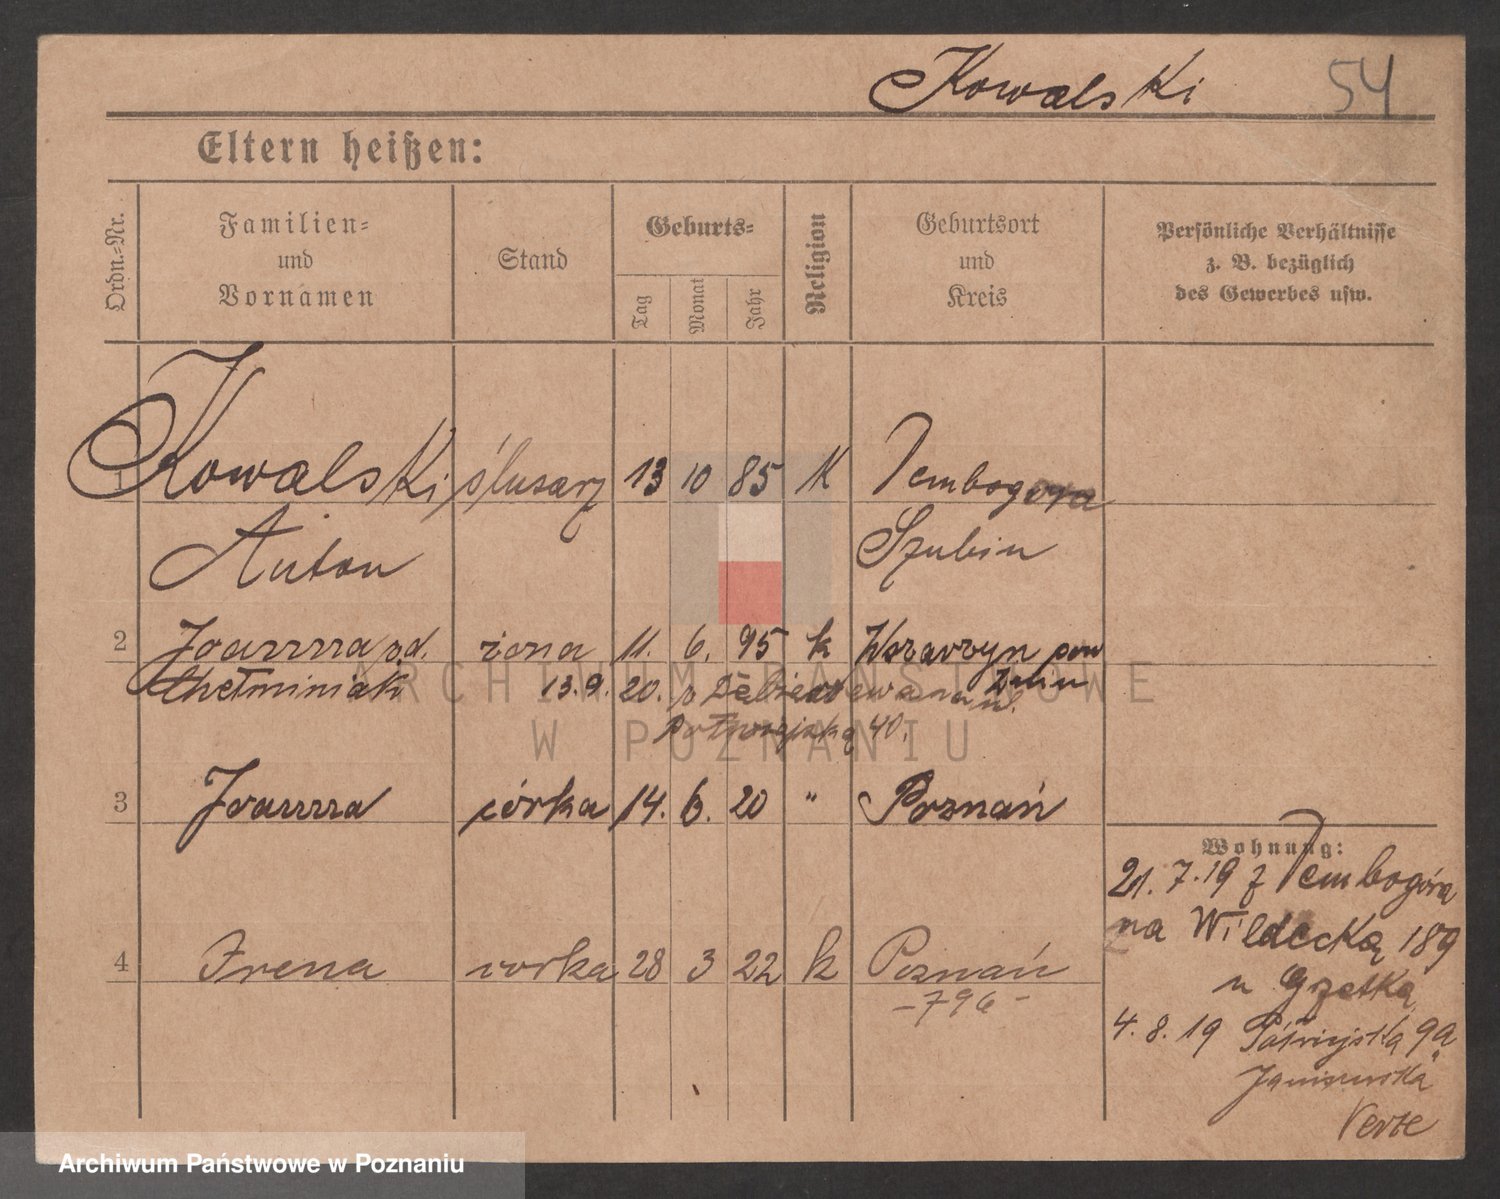 Kowalski 54
Eltern heißen:
Ordn.-Nr.
Familien-
und
Vornamen
Stand
Geburts-
Tag
Monat
Jahr
Religion
Geburtsort
und
Kreis
Persönliche Verhältnisse
z. B. bezüglich
des Gewerbes usw.
1 Kowalski ślusarz 13 10 85 K Dembogora
Anton Szubin
2 Joanna żona 11. 6. 95 k pow
Chełminiak 13.9.20. p
40.
3 Joanna córka 14. 6. 20 " Poznań
4 Irena corka 28 3 22 k Poznań
-796-
Wohnung:
21.7.19 z Dembogóra
na Wildecką 189
u
4.8.19 9a
Verte
ARCHIWUM PAŃSTWOWE
W POZNANIU
Archiwum Państwowe w Poznaniu